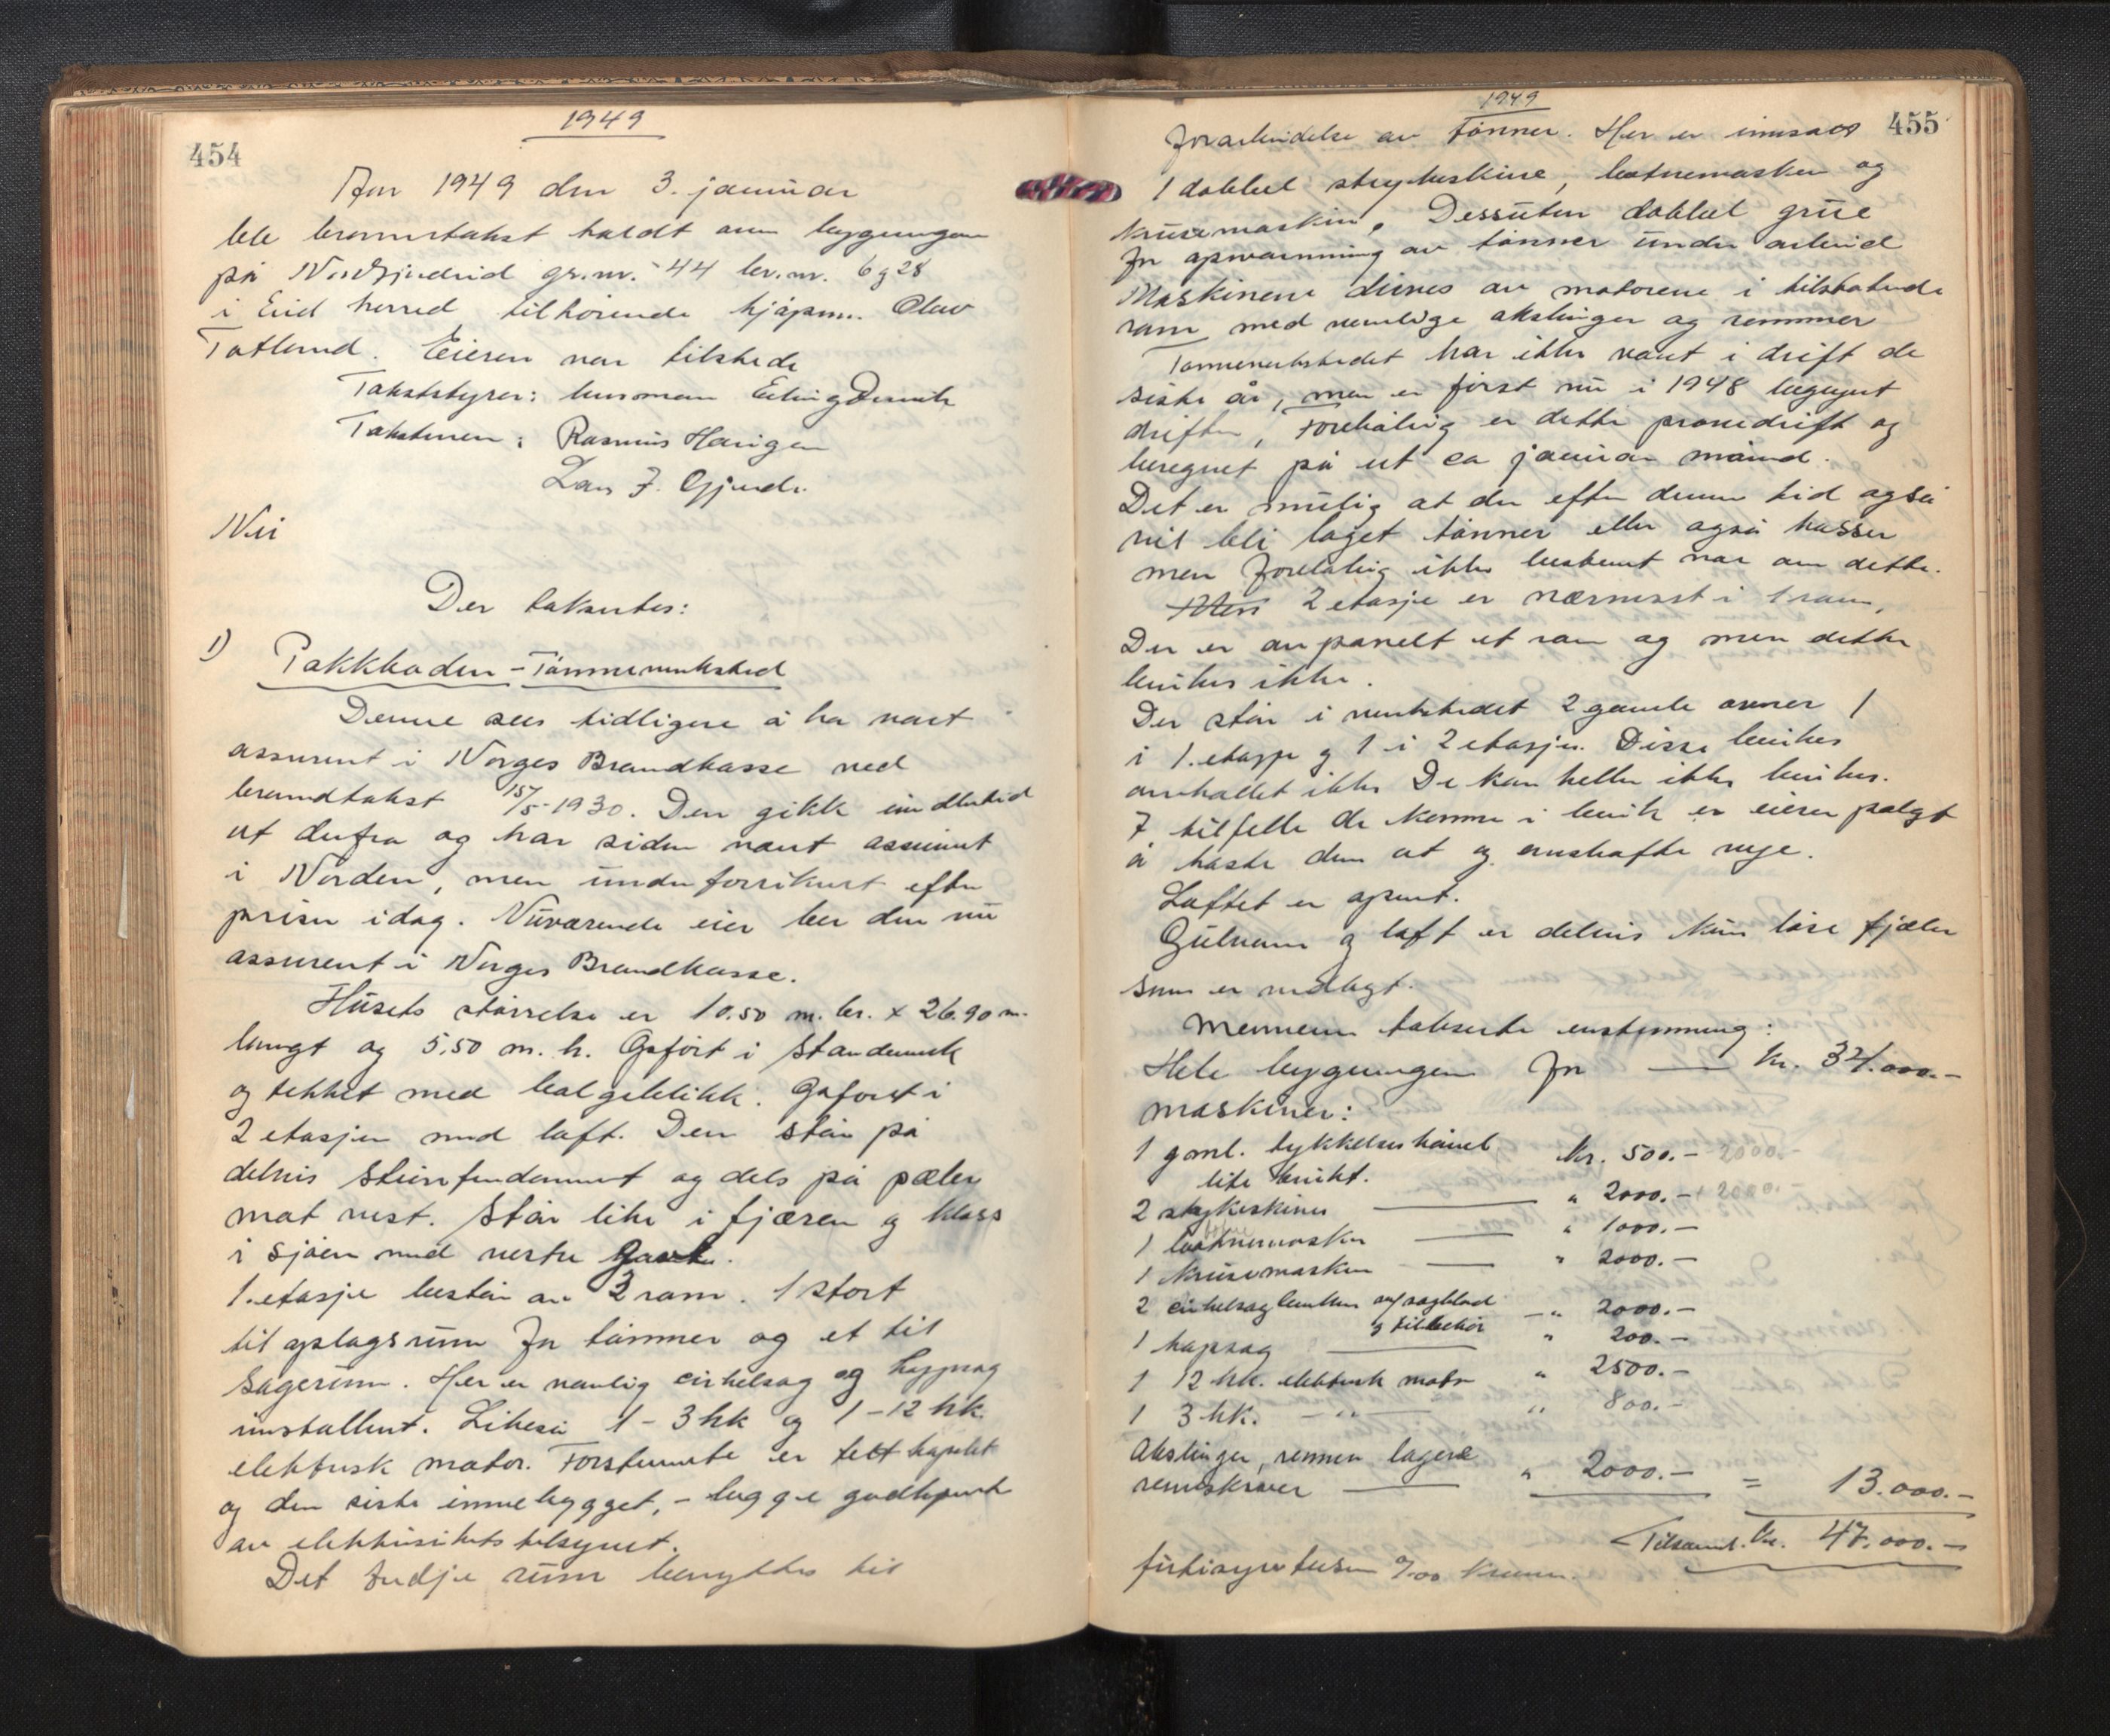 1949
454
Aar 1949 den 3. januar
ble branntakst holdt over bygningen
på Nordfjordeid gr.nr. 44 br.nr. 6 og 28
i Eid herred tilhørende kjøpm. Olav
Totland. Eieren var tilstede
Takststyrer: lensmann Erling
Takstmen: Rasmus Haugen
Lars J. Gjerde.
Nei
Der takseres:
1) Pakkboden - Tønneverksted
Denne sees tidligere å ha vært
assurert i Norges Brandkasse ved
brandtakst 15/5-1930. Den gikk imidlertid
ut derfra og har siden vært assurert
i Norden, men underforsikret efter
prisen idag. Nuværende eier ber den nu
assurert i Norges Brandkasse.
Husets størrelse er 10.50 m. br. x 26.90 m.
langt og 5,50 m. h. Opført i standerverk
og tekket med bølgeblikk. Opført i
2 etasjer med loft. Den står på
delvis steinfundament og dels på pæler
mot vest. Står like i fjæren og kloss
i sjøen med vestre gavl.
1. etasje består av 3 rom. 1 stort
til oplagsrum for tønner og et til
sagerum. Her er nemlig cirkelsag og kappsag
installert. Likeså 1 - 3 hk og 1 - 12 hk.
elektrisk motor. Førstnevnte er tett kapslet
og den siste innebygget, - begge godkjent
av elektrisitetstilsynet.
Det tredje rum benyttes til
1949
455
forarbeidelse av tønner. Her er innsatt
1 dobbel strykeskine, botnemaskin og
krusemaskin. Dessuten dobbel grue
for opvarmning av tønner under arbeid
Maskinene drives av motorene i tilstøtende
rom med nemlige akslinger og remmer
Tønneverkstedet har ikke vært i drift de
siste år, men er først nu i 1948 begynt
driften, Foreløbig er dette prøvedrift og
beregnet på ut ca januar måned.
Det er mulig at der efter denne tid også
vil bli laget tønner eller også kasser
men foreløbig ikke bestemt noe om dette.
2 etasje er nærmest i 1 rom,
Der er avpanelt et rom og men dette
brukes ikke.
Der står i verkstedet 2 gamle ovner 1
i 1. etasje og 1 i 2 etasje. Disse brukes
overhodet ikke De kan heller ikke brukes.
I tilfelle de kommer i bruk er eieren pålagt
å kaste dem ut og anskaffe nye.
Loftet er åpent.
Gulvene og loft er delvis kun løse fjæler
som er nedlagt.
Mennene takserte enstemmig:
Hele bygningen for — kr. 34.000.-
Maskiner:
1 gml. tykkelseshøvel
lite brukt. kr. 500.- 2000.-
2 strykeskiner — " 2000.- 2000.-
1 botnemaskin — " 1000.-
1 krusemaskin — " 2000.-
2 cirkelsagbenker m/sagblad
og tilbehør — " 2000.-
1 kapsag — " 200.-
1 12 hk. elektrisk motor " 2500.-
1 3 hk. — " — " 800.-
Akslinger, remmer lagere
remskiver — " 2000.- = 13.000.-
Tilsamml. Kr. 47.000.-
førtisyvtusen 0/00 kroner.